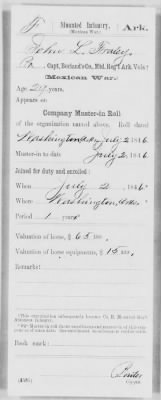 F Mounted Infantry, Ark.
(Mexican War.)
John L. Fraley
Pvt, Capt. Borland's Co., Mtd. Reg't Ark. Vols.*
(Mexican War.)
Age 24 years.
Appears on
Company Muster-in Roll
of the organization named above. Roll dated
Washington Ark, July 2 1846
Muster-in to date July 2, 1846
Joined for duty and enrolled:
When July 2, 1846
Where Washington, Ark.
Period 1 years
Valuation of horse, $ 65.
Valuation of horse equipments, $ 15.
Remarks:
*This organization subsequently became Co.
Book mark:
Copyist.